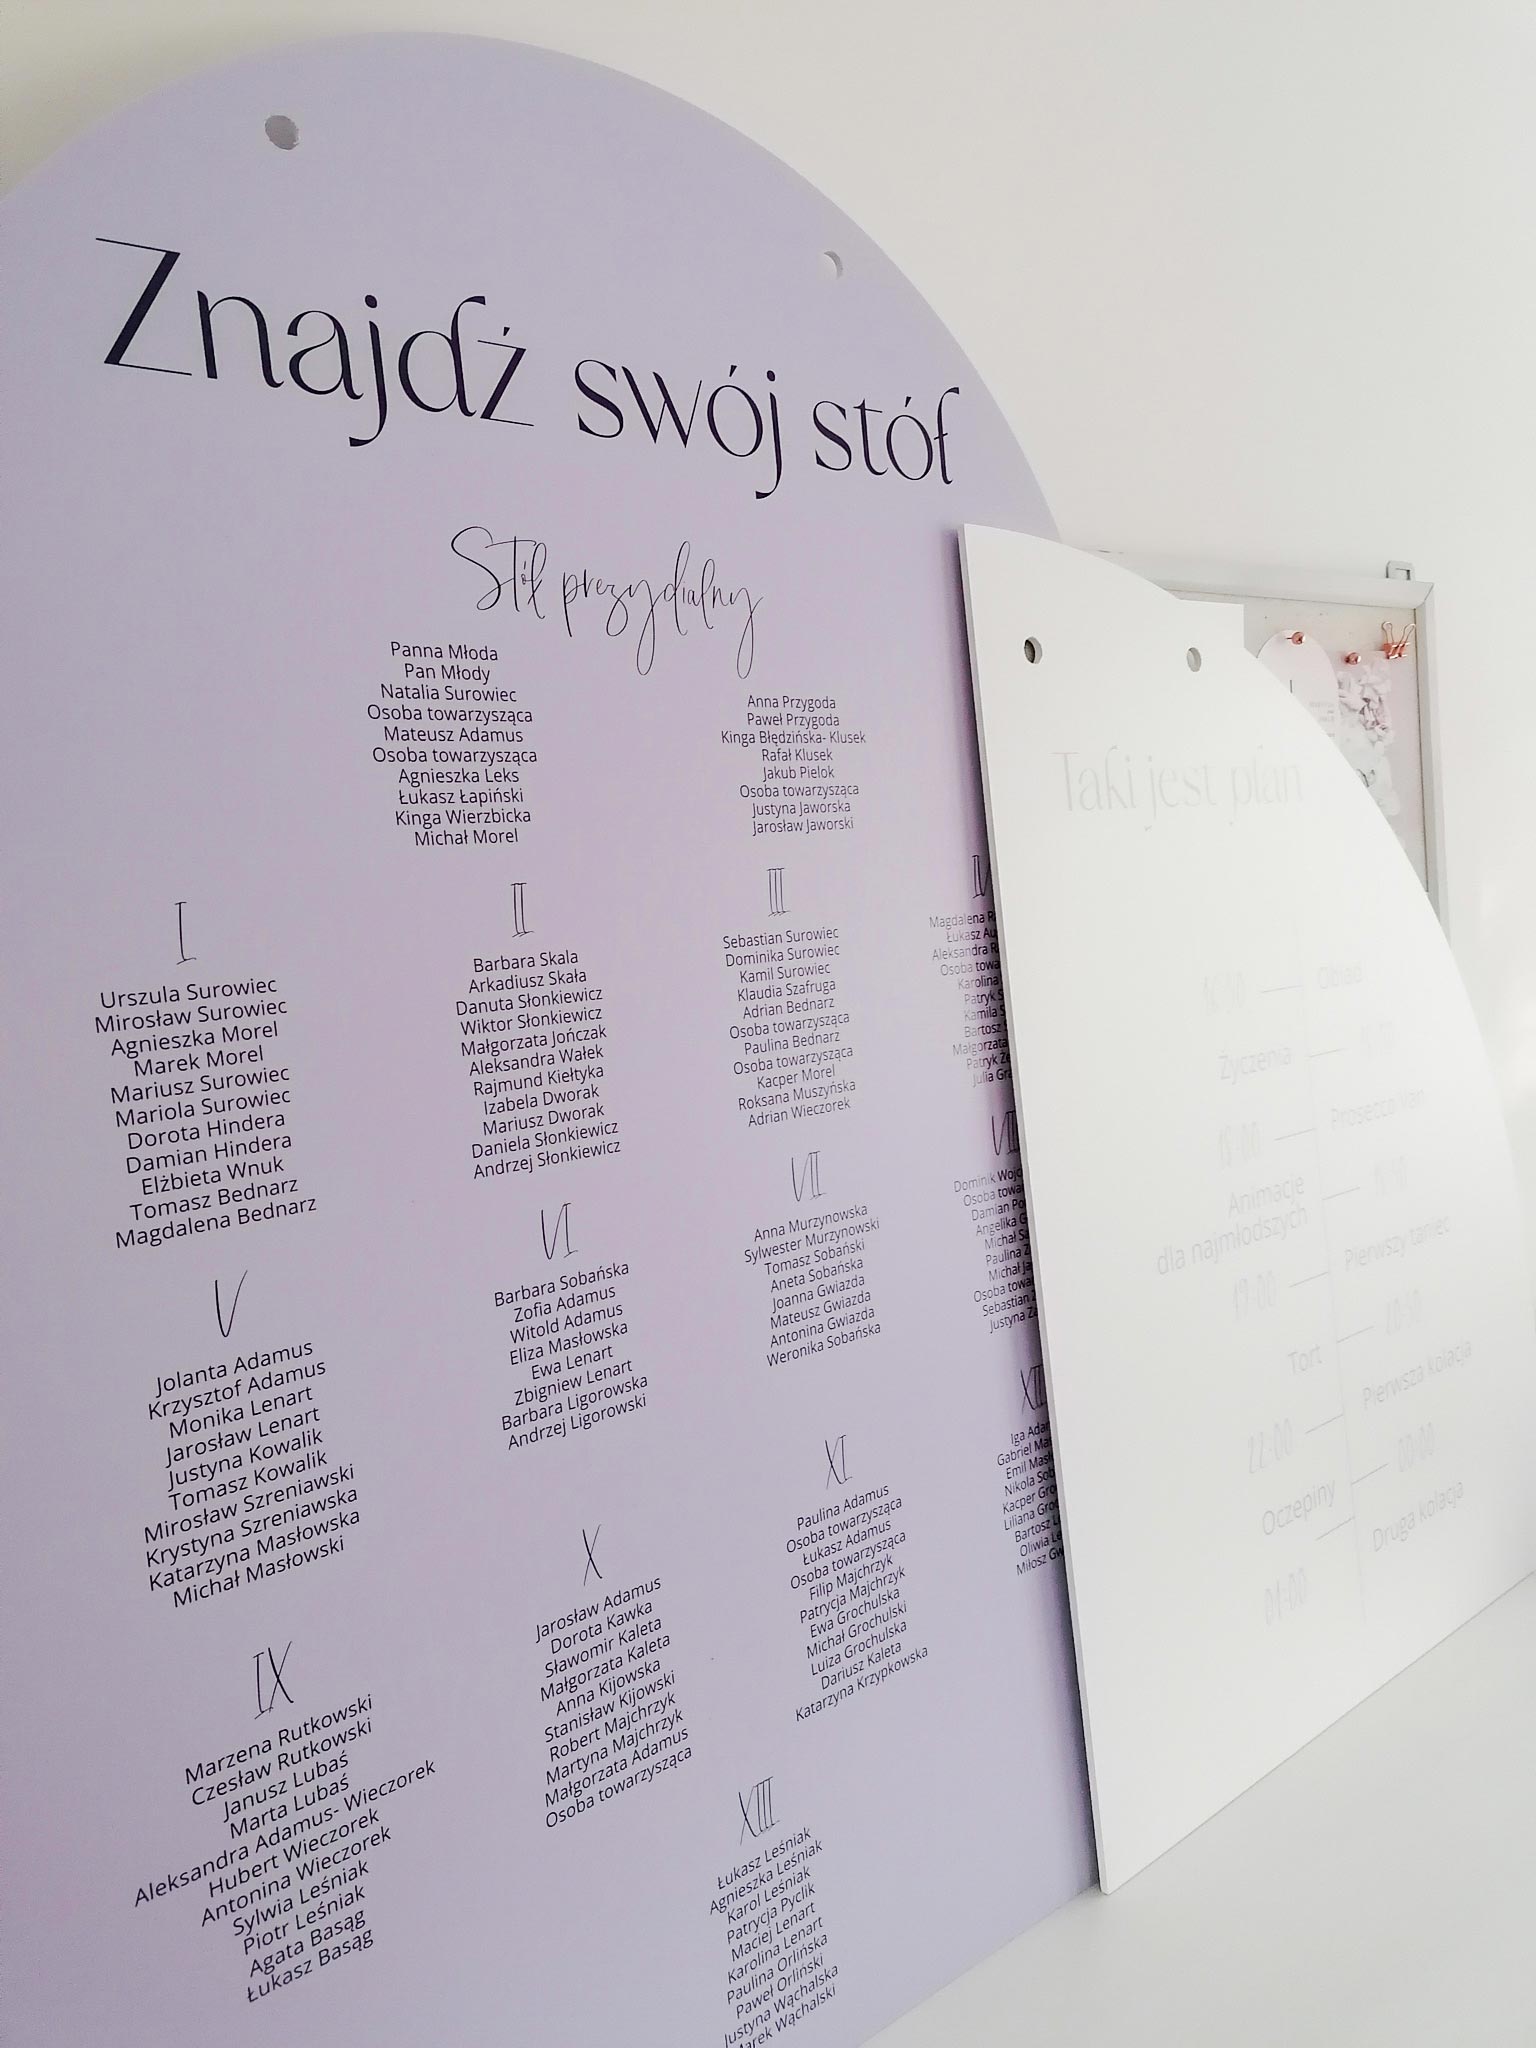 Znajdź swój stół
Stół prezydialny
Panna Młoda
Pan Młody
Natalia Surowiec
Osoba towarzysząca
Mateusz Adamus
Osoba towarzysząca
Agnieszka Leks
Łukasz Łapiński
Kinga Wierzbicka
Michał Morel
Anna Przygoda
Paweł Przygoda
Kinga Błędzińska- Klusek
Rafał Klusek
Jakub Pielok
Osoba towarzysząca
Justyna Jaworska
Jarosław Jaworski
I
Urszula Surowiec
Mirosław Surowiec
Agnieszka Morel
Marek Morel
Mariusz Surowiec
Mariola Surowiec
Dorota Hindera
Damian Hindera
Elżbieta Wnuk
Tomasz Bednarz
Magdalena Bednarz
II
Barbara Skala
Arkadiusz Skała
Danuta Słonkiewicz
Wiktor Słonkiewicz
Małgorzata Jończak
Aleksandra Wałek
Rajmund Kiełtyka
Izabela Dworak
Mariusz Dworak
Daniela Słonkiewicz
Andrzej Słonkiewicz
III
Sebastian Surowiec
Dominika Surowiec
Kamil Surowiec
Klaudia Szafruga
Adrian Bednarz
Osoba towarzysząca
Paulina Bednarz
Osoba towarzysząca
Kacper Morel
Roksana Muszyńska
Adrian Wieczorek
Magdalena
Łukasz
Aleksandra
Osoba
Karolina
Patryk
Kamila
Bartosz
Małgorzata
Patryk
Julia
V
Jolanta Adamus
Krzysztof Adamus
Monika Lenart
Jarosław Lenart
Justyna Kowalik
Tomasz Kowalik
Mirosław Szreniawski
Krystyna Szreniawska
Katarzyna Masłowska
Michał Masłowski
VI
Barbara Sobańska
Zofia Adamus
Witold Adamus
Eliza Masłowska
Ewa Lenart
Zbigniew Lenart
Barbara Ligorowska
Andrzej Ligorowski
VII
Anna Murzynowska
Sylwester Murzynowski
Tomasz Sobański
Aneta Sobańska
Joanna Gwiazda
Mateusz Gwiazda
Antonina Gwiazda
Weronika Sobańska
Dominik
Osoba
Damian
Angelika
Michał
Paulina
Michał
Osoba
Sebastian
Justyna
IX
Marzena Rutkowski
Czesław Rutkowski
Janusz Lubaś
Marta Lubaś
Aleksandra Adamus- Wieczorek
Hubert Wieczorek
Antonina Wieczorek
Sylwia Leśniak
Piotr Leśniak
Agata Basąg
Łukasz Basąg
X
Jarosław Adamus
Dorota Kawka
Sławomir Kaleta
Małgorzata Kaleta
Anna Kijowska
Stanisław Kijowski
Robert Majchrzyk
Martyna Majchrzyk
Małgorzata Adamus
Osoba towarzysząca
XI
Paulina Adamus
Osoba towarzysząca
Łukasz Adamus
Osoba towarzysząca
Filip Majchrzyk
Patrycja Majchrzyk
Ewa Grochulska
Michał Grochulski
Luiza Grochulska
Dariusz Kaleta
Katarzyna Krzypkowska
Iga
Gabriel
Emil
Nikola
Kacper
Liliana
Bartosz
Oliwia
Miłosz
XIII
Łukasz Leśniak
Agnieszka Leśniak
Karol Leśniak
Patrycja Pyclik
Maciej Lenart
Karolina Lenart
Paulina Orlińska
Paweł Orliński
Justyna Wąchalska
Marek Wąchalski
Taki jest plan
Obiad
Życzenia
Prosecco Van
18:00
Animacje
dla najmłodszych
Pierwszy taniec
19:00
20:30
Tort
Pierwsza kolacja
22:00
00:00
Oczepiny
Druga kolacja
01:00